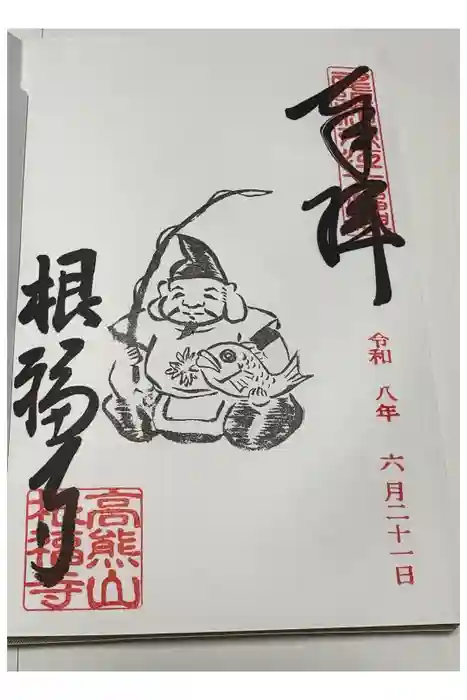 奉拝
令和 八年 六月二十一日
根福寺
高熊山
根福寺